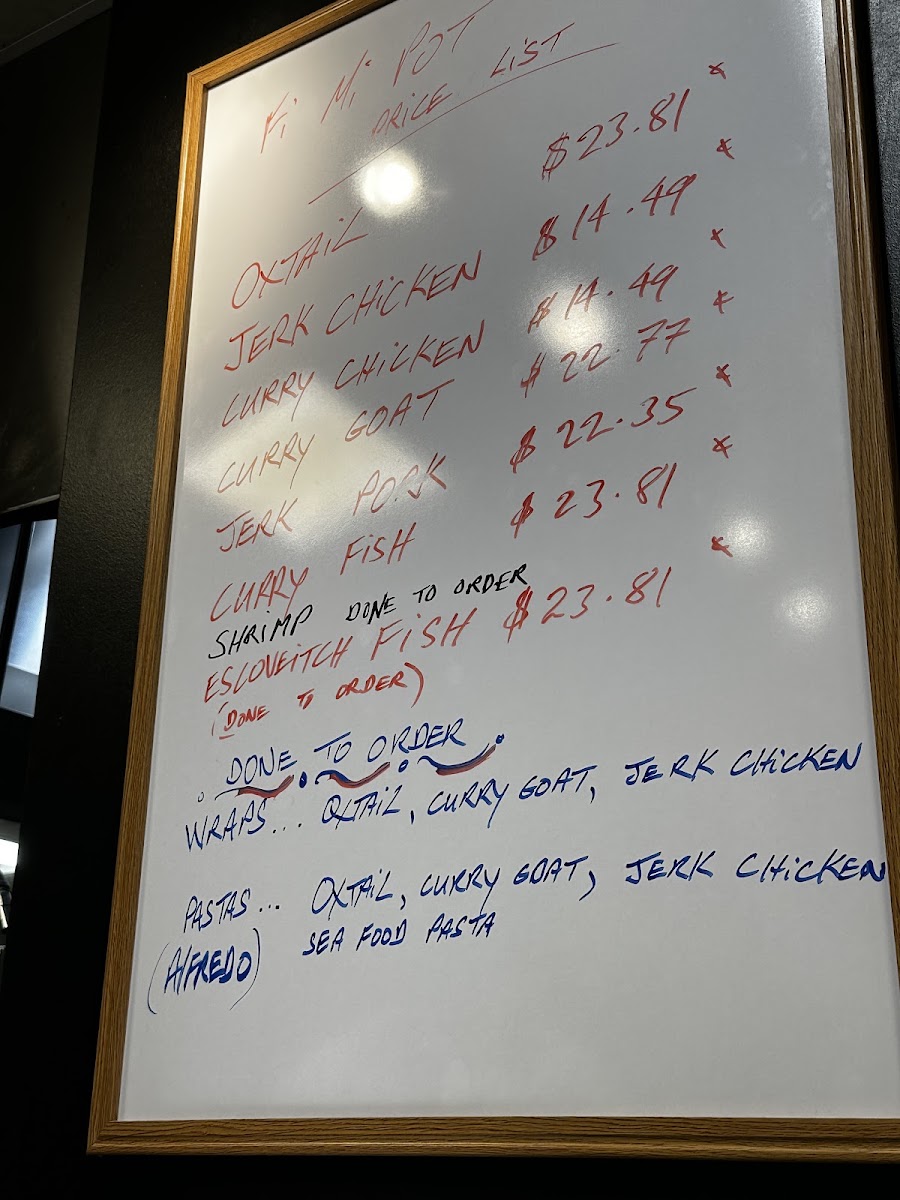 Fi Mi POT
PRICE LIST
OXTAIL $23.81 *
JERK CHICKEN $14.49 *
CURRY CHICKEN $14.49 *
CURRY GOAT $22.77 *
JERK PORK $22.35 *
CURRY FISH $23.81 *
SHRIMP DONE TO ORDER
ESCOVEITCH FISH $23.81 *
(DONE TO ORDER)
DONE TO ORDER
WRAPS... OXTAIL, CURRY GOAT, JERK CHICKEN
PASTAS... OXTAIL, CURRY GOAT, JERK CHICKEN
(AlFREDO) SEA FOOD PASTA